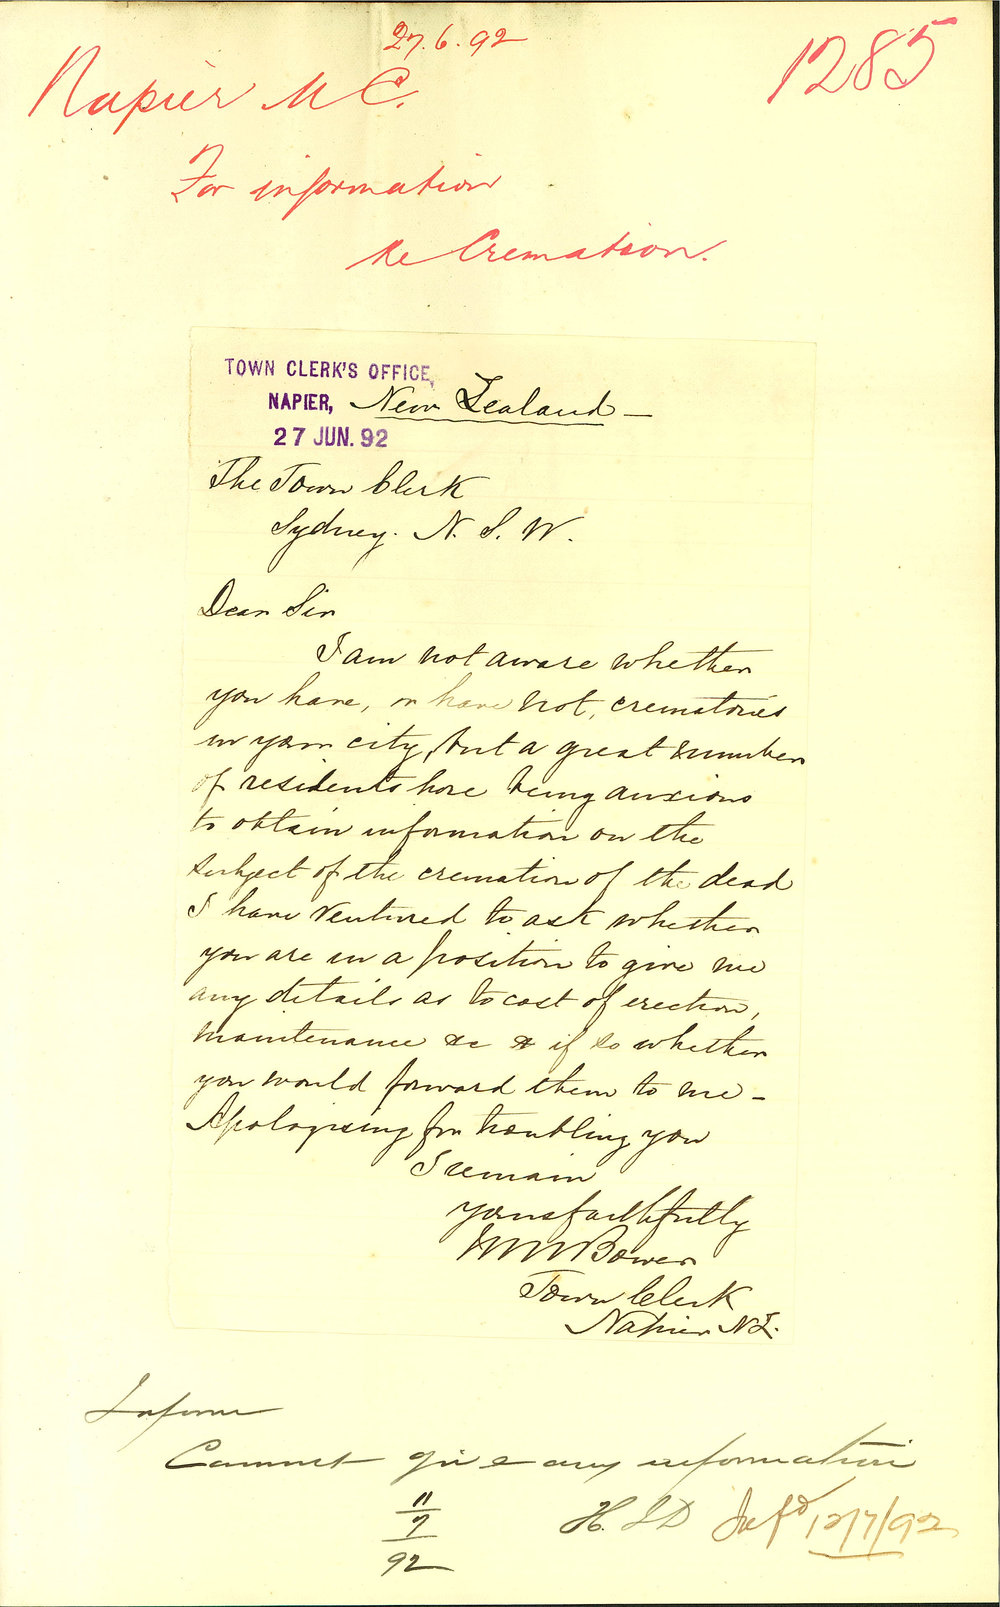 27.6.92
1285
Napier M C.
For information
Re Cremation.
TOWN CLERK'S OFFICE,
NAPIER, New Zealand —
27 JUN. 92
The Town Clerk
Sydney. N. S. W.
Dear Sir
I am not aware whether
you have, or have not, crematories
in your city, but a great number
of residents here being anxious
to obtain information on the
subject of the cremation of the dead
I have ventured to ask whether
you are in a position to give me
any details as to cost of erection,
maintenance &c & if so whether
you would forward them to me —
Apologising for troubling you
I remain
yours faithfully
Bower
Town Clerk
Napier N Z.
Inform
Cannot give any information
11/7/92
H.
Infd 12/7/92